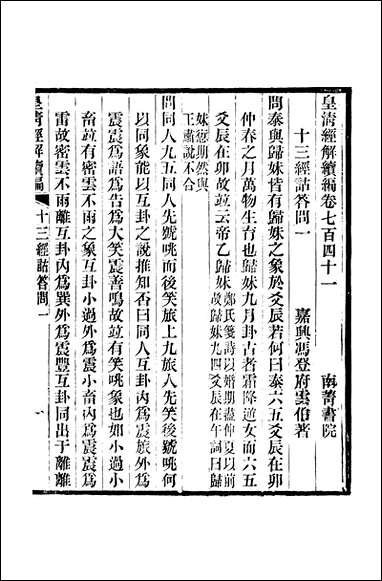 皇淸經解續編卷七百四十一　南菁書院
十三經詁答問一　嘉興馮登府雲伯著
問泰與歸妹皆有歸妹之象於爻辰若何曰泰六五爻辰在卯
仲春之月萬物生育也歸妹九月卦古者霜降逆女而六五
爻辰在卯故竝云帝乙歸妹鄭氏箋詩以婚期盡仲夏以前歸妹九四爻辰在午詞曰歸
妹愆期然與王肅說不合
問同人九五同人先號咷而後笑旅上九旅人先笑後號咷何
以同象能以互卦之說推知否曰同人互卦內爲巽旅外爲
震震爲語爲告爲大笑震善鳴故竝有笑咷象也如小過小
畜竝有密雲不雨之象互卦小過外爲震小畜內爲震震爲
雷故密雲不雨離互卦內爲巽外爲震豐互卦同出于離離
皇淸經解續編　十三經詁答問一　一